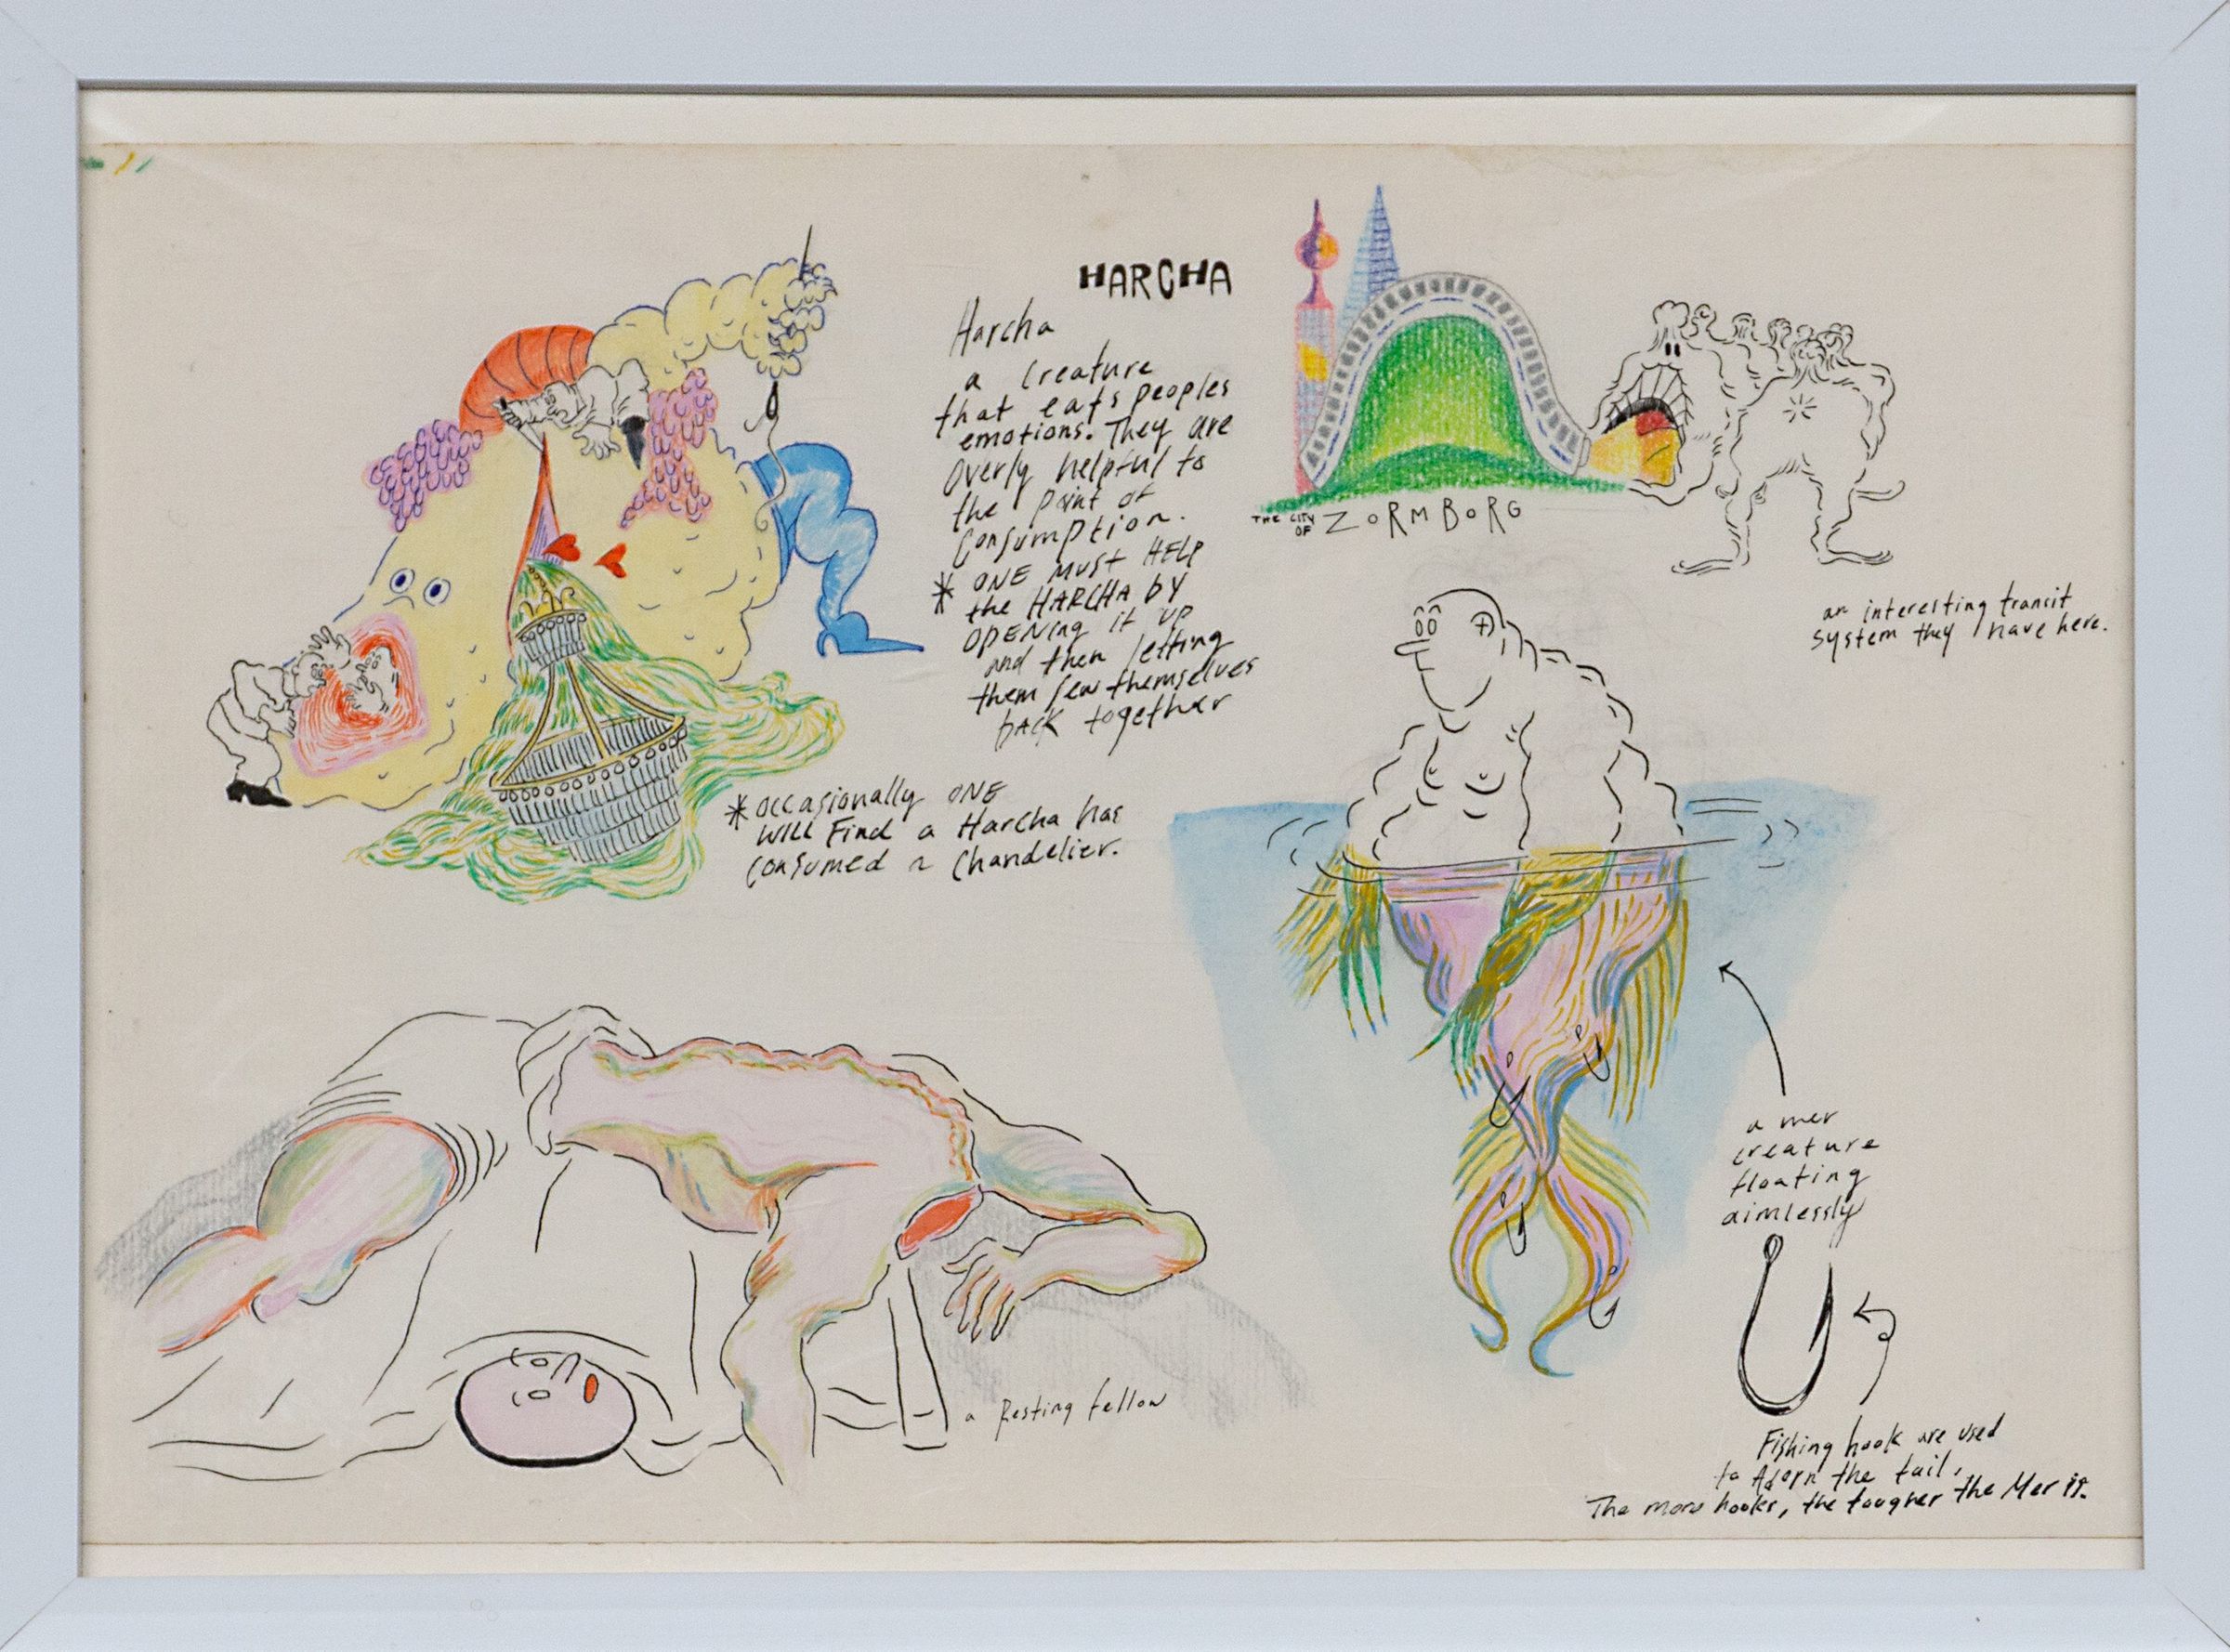 HARCHA
Harcha
a creature
that eats peoples
emotions. They are
overly helpful to
the point of
consumption.
* ONE MUST HELP
the HARCHA by
OPENing it up
and then letting
them sew themselves
back together
* occasionally ONE
WILL Find a Harcha has
consumed a Chandelier.
THE CITY
OF ZORMBORG
an interesting transit
system they have here.
a mer
creature
floating
aimlessly
Fishing hook are used
to Adorn the tail.
The more hooks, the tougher the Mer is.
a Resting fellow